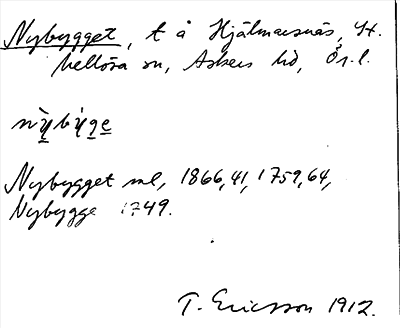 Nybygget, t å Hjälmarsnäs, St.
Mellösa sn, Askers hd, Ör. l.
nỳbýge
Nybygget ml, 1866, 41, 1759, 64,
Nybygge 1749.
T. Ericsson 1912.